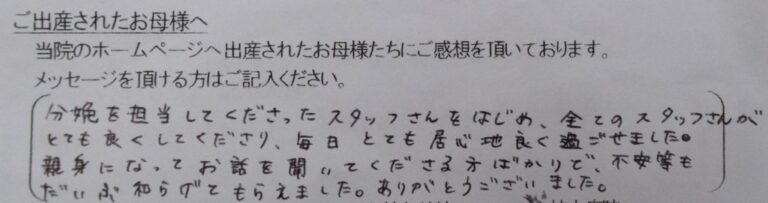 ご出産されたお母様へ
当院のホームページへ出産されたお母様たちにご感想を頂いております。
メッセージを頂ける方はご記入ください。
分娩を担当してくださったスタッフさんをはじめ、全てのスタッフさんが
とても良くしてくださり、毎日とても居心地良く過ごせました。
親身になってお話を聞いてくださる方ばかりで、不安等も
だいぶ和らげてもらえました。ありがとうございました。